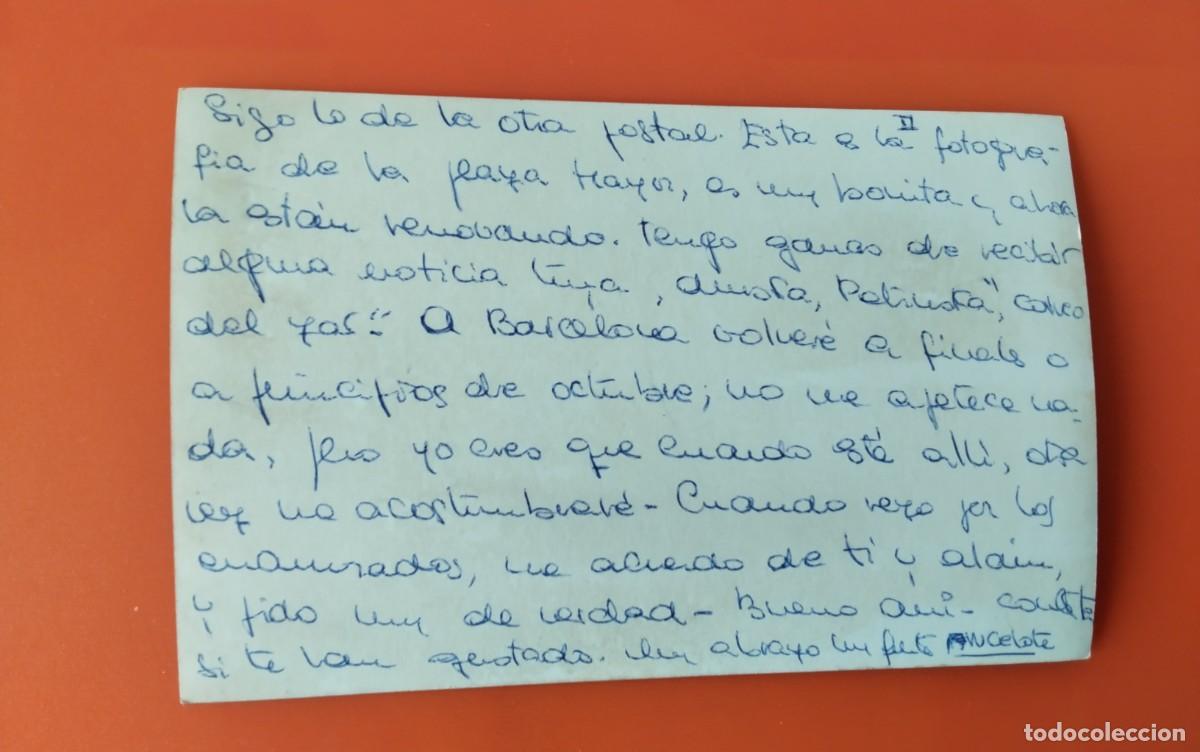 Sigo lo de la otra postal. Esta es la II fotogra-
fia de la plaza Mayor, es muy bonita y ahora
la están renovando. Tengo ganas de recibir
alguna noticia tuya, como
del gas" A Barcelona volveré a finals o
a principios de octubre; no me apetece na-
da, pero yo creo que cuando esté allí, otra
vez me acostumbraré - Cuando rezo por los
enamorados, me acuerdo de ti y alain,
y pido muy de verdad - Bueno
si te han gustado. Un abrazo muy fuerte
todocoleccion